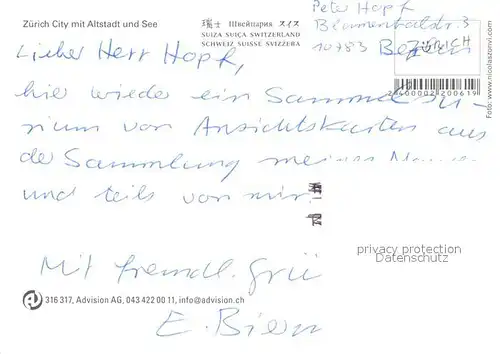 Zürich City mit Altstadt und See
瑞士 Швейцария スイス
SUIZA SUIÇA SWITZERLAND
SCHWEIZ SUISSE SVIZZERA
Peter Hopf
Blumenthalstr. 3
10783 Berlin
ZÜRICH
Lieber Herr Hopf,
hier wieder ein Sammelsu-
rium von Ansichtskarten aus
der Sammlung meines
und teils von mir.
Mit freundl. Grü
E. Biern
privacy protection
Datenschutz
316 317, Advision AG, 043 422 00 11, info@advision.ch
Foto: www.nicolaszonvi.com